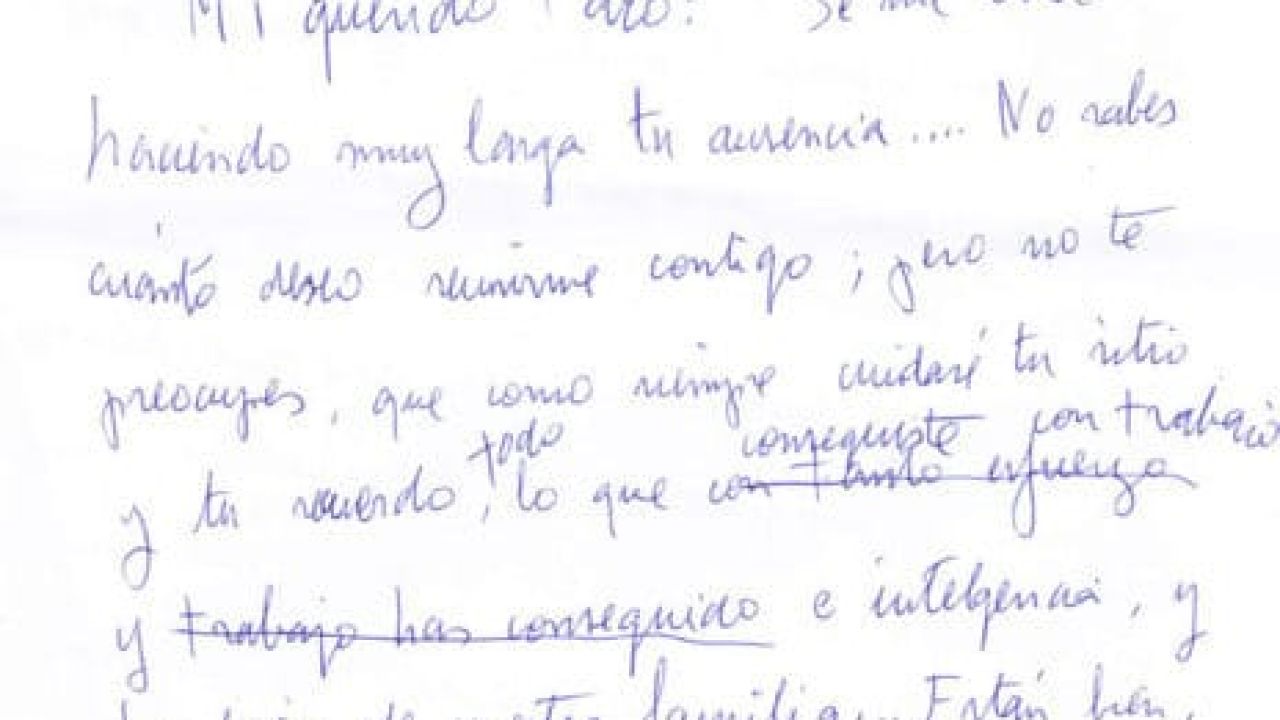 Mi querido Paco: Se me está
haciendo muy larga tu ausencia.... No sabes
cuánto deseo reunirme contigo; pero no te
preocupes, que como siempre cuidaré tu sitio
todo conseguiste con trabajo
y tu recuerdo, lo que con tanto esfuerzo
y trabajo has conseguido e inteligencia, y
de nuestra familia... Están bien,